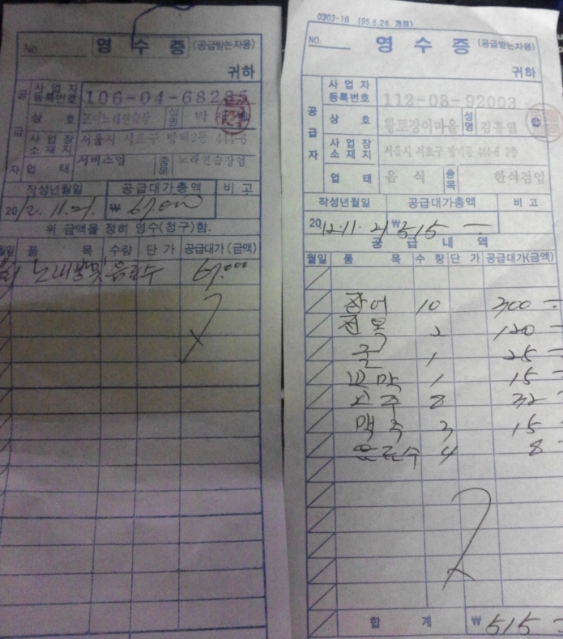 No.
영 수 증 (공급받는자용)
귀하
공급자
사업자등록번호 106-04-68285
상 호
성명
사업장소재지 서울시 서초구 방배2동 444-6
업 태 서비스업 종목 노래연습장업
작성년월일 공급대가총액 비 고
2012. 11. 21. ₩ 67,000
위 금액을 정히 영수(청구)함.
월일 품 목 수량 단가 공급대가(금액)
노래방및음료수 67,000
0303-1B (95.6.28. 개정)
NO.
영 수 증 (공급받는자용)
귀하
공급자
사업자등록번호 112-08-92003
상 호 황토장어마을 성명
사업장소재지 서울시 서초구 방배동 444-6
업 태 음 식 종목 한식점업
작성년월일 공급대가총액 비 고
2012. 11. 21 ₩515 -
공 급 내 역
월일 품 목 수 량 단 가 공급대가(금액)
장어 10 300 -
전복 2 120 -
굴 1 25 -
꼬막 1 15 -
소주 8 32 -
맥주 3 15 -
음료수 4 8 -
합 계 ₩ 515 -